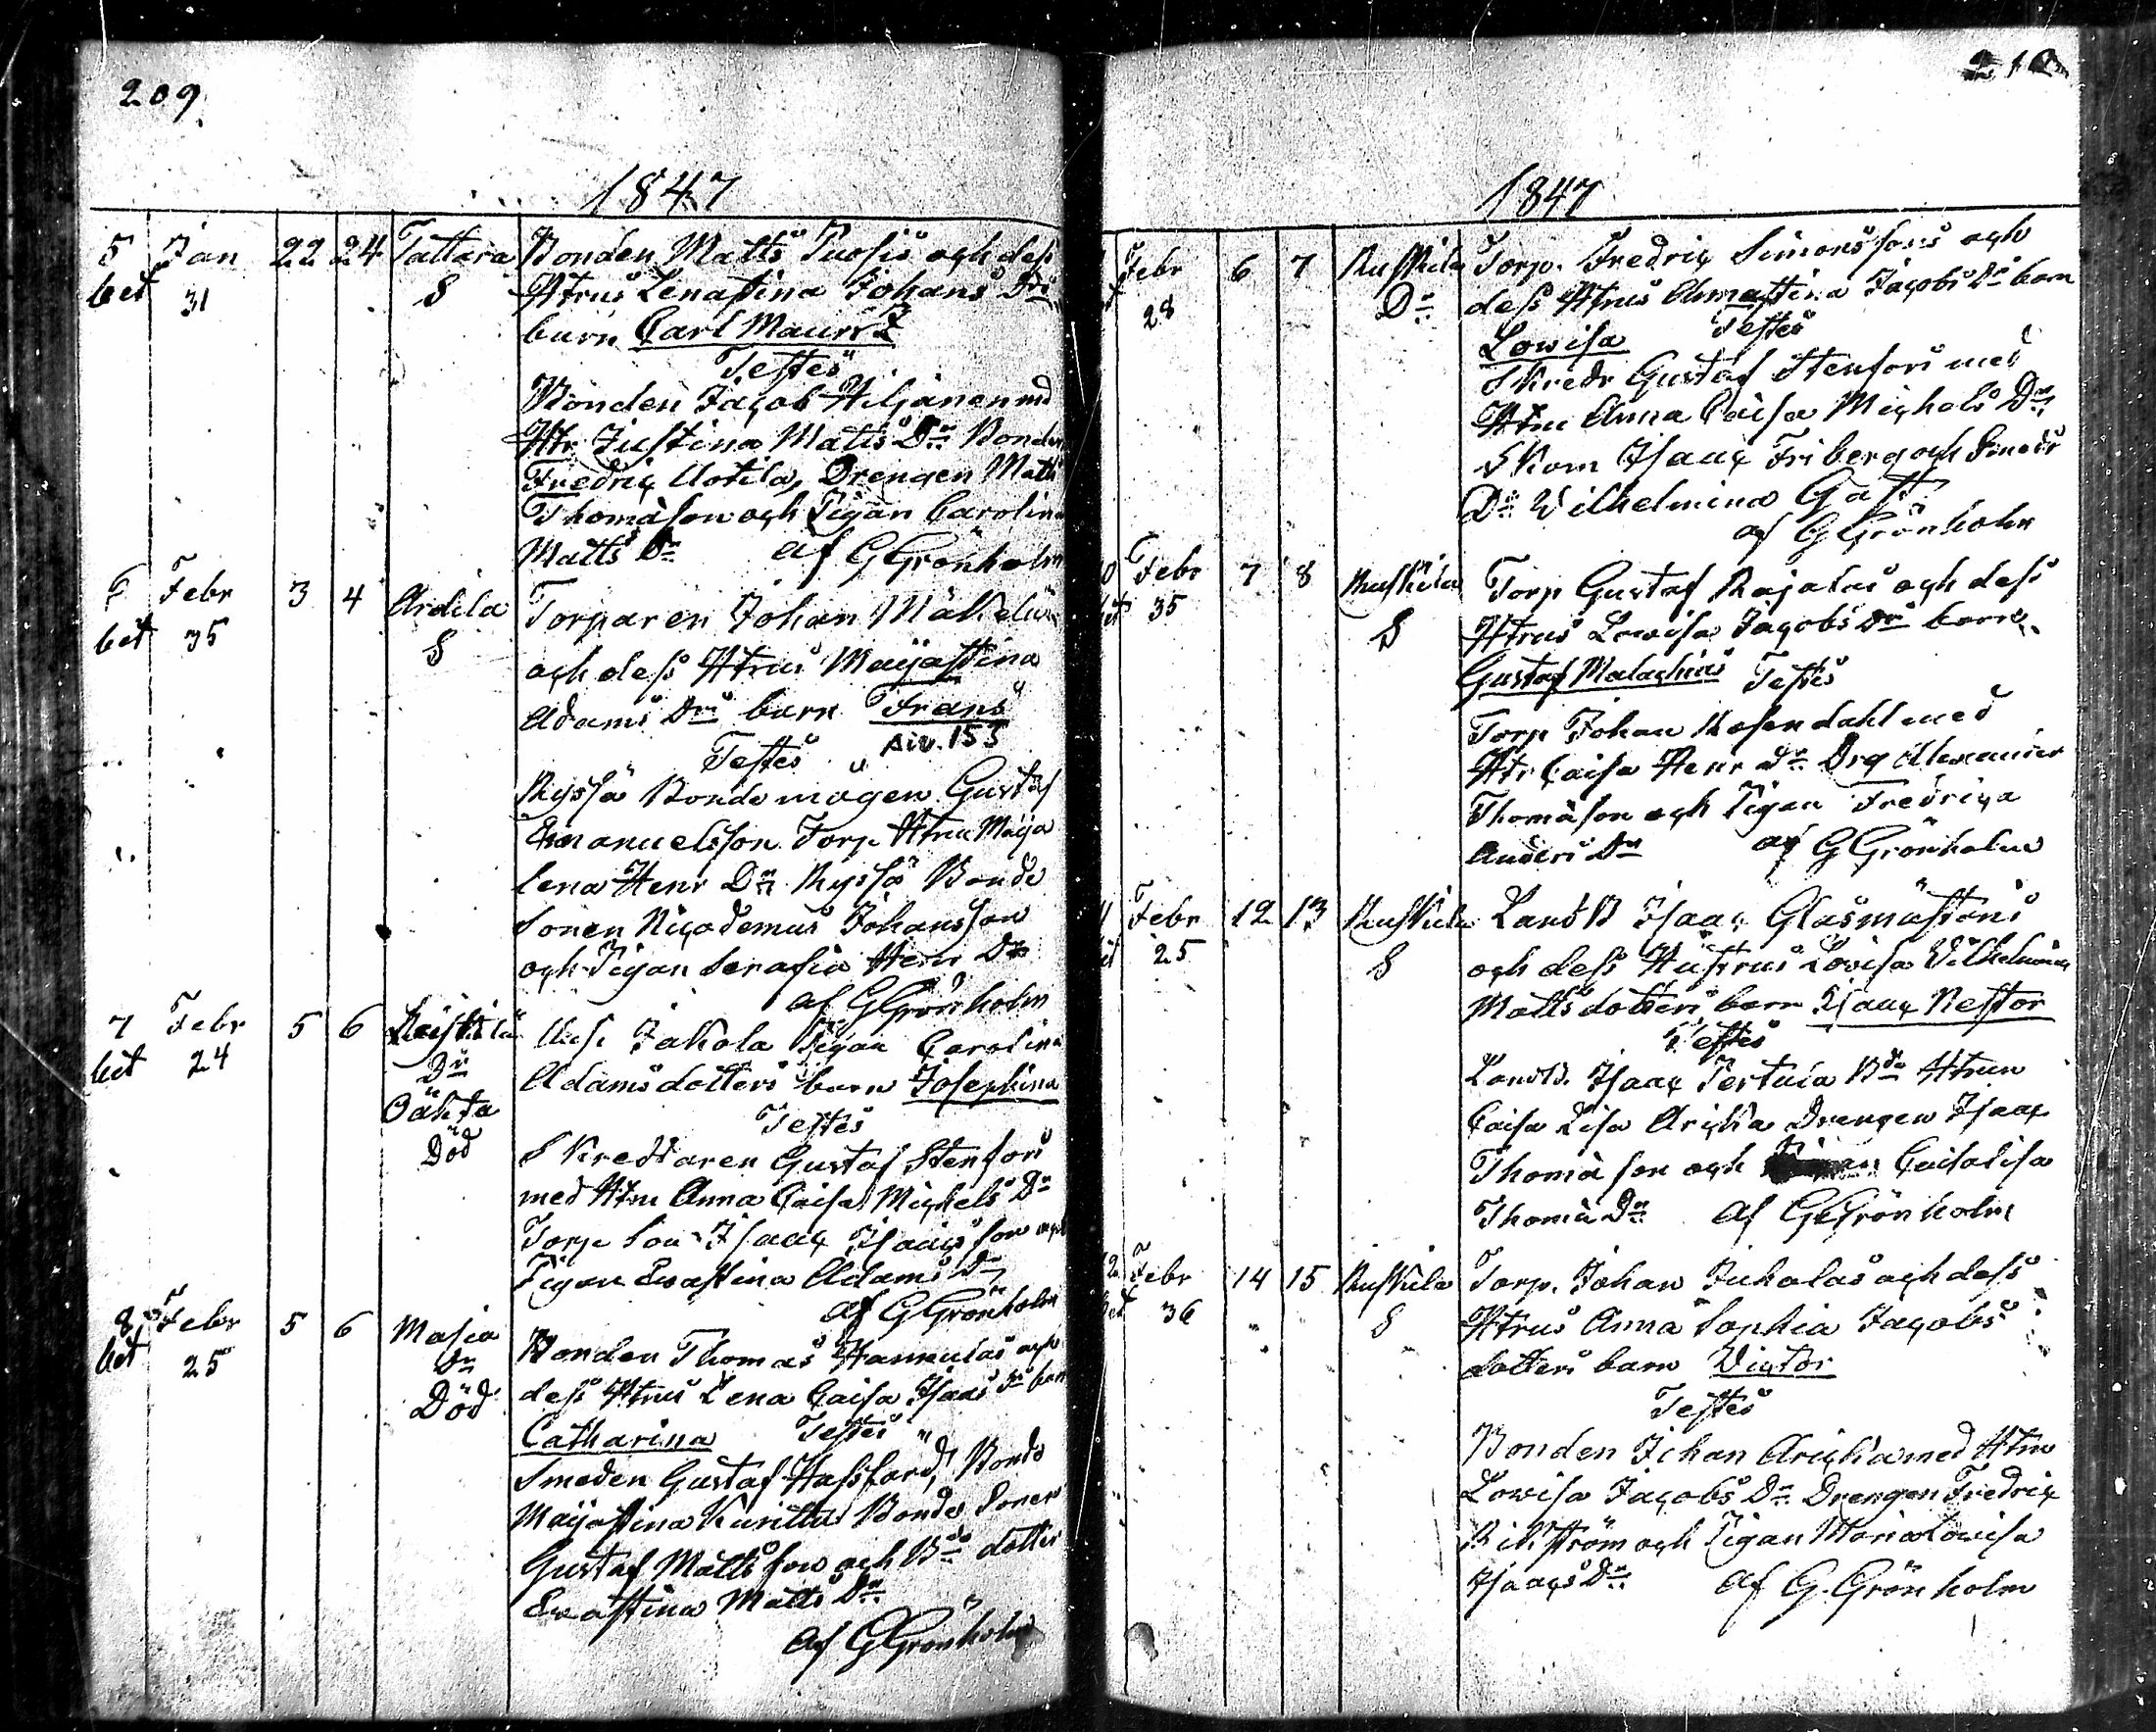 209
1847
5 Jan 22 24 Tattara Bonden Matts Tuosis och dess
bet 31 S Htrus Lenastina Johans Drs
barn Carl Mauritz
Testes
Bonden Jacob Hiljanen md
Htr Justina Matts Dr Bonden
Fredric Uotila, Drengen Matts
Thomason och Pigan Carolina
Matts Dr af G Grönholm
6 Febr 3 4 Ardila Torparen Johan Mäkeläs
bet 35 S och dess Htrus Majastina
Adams Drs barn Frans
Testes Siv. 153
Ryssä Bonde mågen Gustaf
Emanuelsson Torp Htru Maja
lena Henr Dr Ryssä Bonde
Sonen Nicodemus Johansson
och Pigan Serafia Henr Dr
af G Grönholm
7 Febr 5 6 Jakola Pigan Carolina
bet 24 Dr Adamsdotters barn Josephina
Oäkta Testes
Död Skreddaren Gustaf Stenfors
med Htru Anna Caisa Michels Dr
Torp Son Isaac Isaacsson och
Pigan Evastina Adams Dr
af G Grönholm
8 Febr 5 6 Masia Bonden Thomas och
bet 25 Dr dess Htrus Lena Caisa Isaacs Drs barn
Död Catharina Testes
Smeden Gustaf Hassfard, Bonde
Majastina Kurittu Bonde Sonen
Gustaf Mattsson och Bde dotter
Evastina Matts Dr
af G Grönholm
210
1847
Febr 6 7 Ruskila Torp. Fredric Simonssons och
28 Dr dess Htrus Annastina Jacobs Drs barn
Lowisa Testes
Skredr Gustaf Stenfors med
Htru Anna Caisa Michels Dr
Skom Isaac Friberg och Smeds
Dr Wilhelmina Gast
af G Grönholm
10 Febr 7 8 Ruskila Torp Gustaf Rajalas och dess
bet 35 S Htrus Lowisa Jacobs Drs barn
Gustaf Malachias Testes
Torp Johan Rosendahl med
Htr Caisa Henr Dr Drg Alexander
Thomason och Pigan Fredrica
Anders Dr af G Grönholm
11 Febr 12 13 Ruskila Landb Isaac Glasmästars
bet 25 S och dess Hustrus Lovisa Vilhelmina
Mattsdotters barn Isaac Nestor
Testes
Landb. Isaac Pertula Bde Htrun
Caisa Lisa Drengen Isaac
Thomason och Pigan Caisalisa
Thoma Dr af G Grönholm
12 Febr 14 15 Ruskila Torp. Johan Juholas och dess
bet 36 S Htrus Anna Sophia Jacobs
dotters barn Victor
Testes
Bonden Johan med Htru
Lowisa Jacobs Dr Drengen Fredric
Rikström och Pigan Maria Lovisa
Isaacs Dr af G. Grönholm